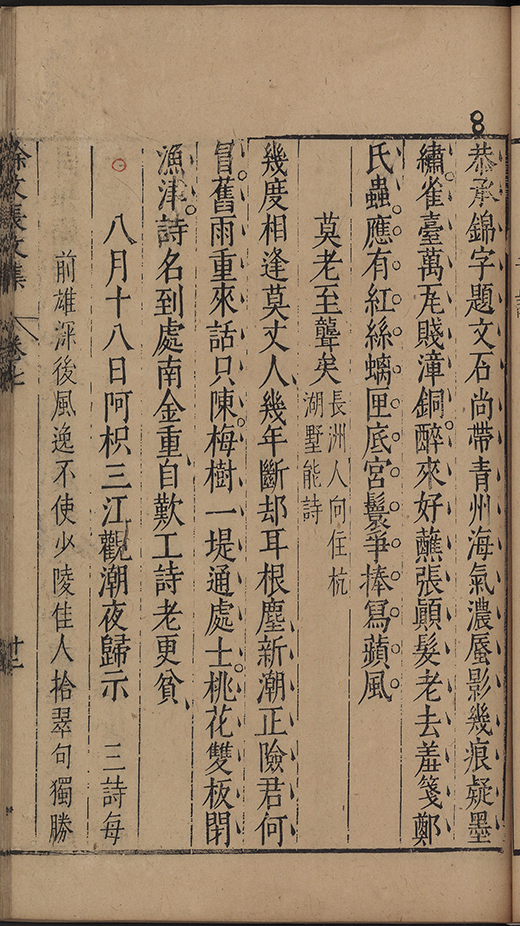 8
恭承錦字題文石尚帶青州海氣濃蜃影幾痕疑墨
繡雀臺萬瓦賤漳銅醉來好蘸張顛髮老去羞箋鄭
氏蟲應有紅絲螭匣底宮鬟爭捧寫蘋風
莫老至聾矣
長洲人向住杭
湖墅能詩
幾度相逢莫丈人幾年斷却耳根塵新潮正險君何
冒舊雨重來話只陳梅樹一堤通處士桃花雙板閉
漁津詩名到處南金重自歎工詩老更貧
八月十八日阿枳三江觀潮夜歸示
三詩每
前雄深後風逸不使少陵佳人拾翠句獨勝
徐文長文集
卷七
十二